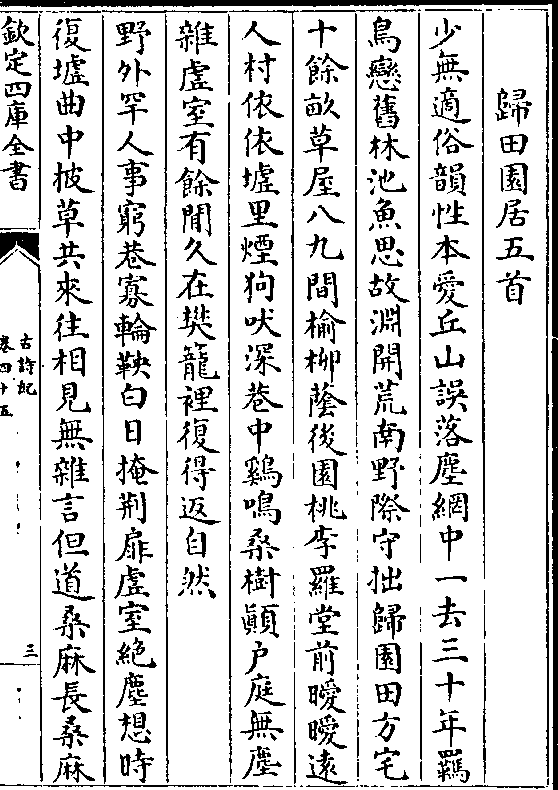 歸田園居五首
少無適俗韻性本愛丘山誤落塵網中一去三十年羈
鳥戀舊林池魚思故淵開荒南野際守拙歸園田方宅
十餘畝草屋八九間榆柳蔭後園桃李羅堂前曖曖遠
人村依依墟里煙狗吠深巷中鷄鳴桑樹顚户庭無塵
雜虛室有餘閒久在樊籠裡復得返自然
野外罕人事窮巷寡輪鞅白日掩荆扉虛室絶塵想時
復墟曲中披草共來往相見無雜言但道桑麻長桑麻
欽定四庫全書
古詩紀
卷四十五
三